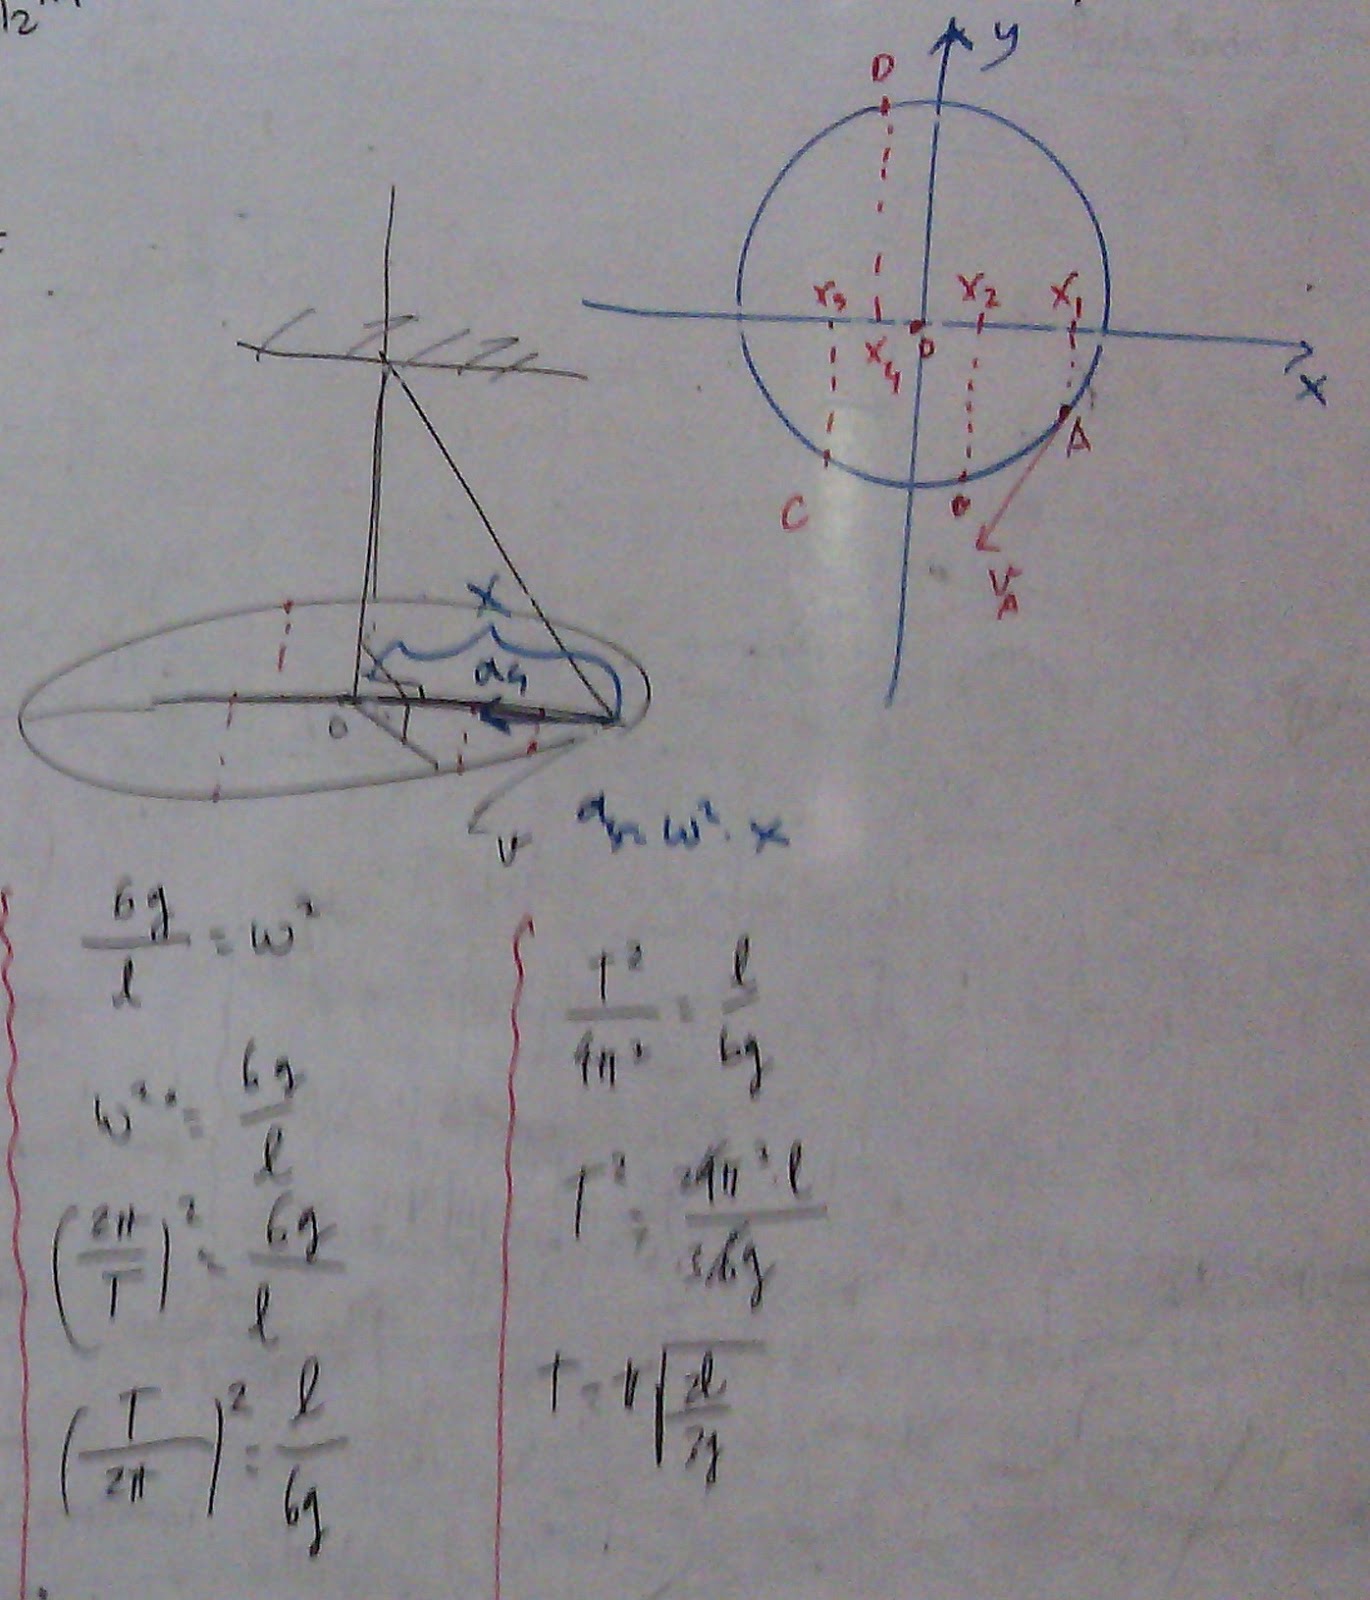 y
D
x₃
x₂
x₁
x₄
O
x
A
C
V_A
x
a₄
O
v
aₙ = ω² · x
6g/l = ω²
ω² = 6g/l
(2π/T)² = 6g/l
(T/2π)² = l/6g
T²/4π² = l/6g
T² = 4π² · l/6g
T = π√(2l/3g)